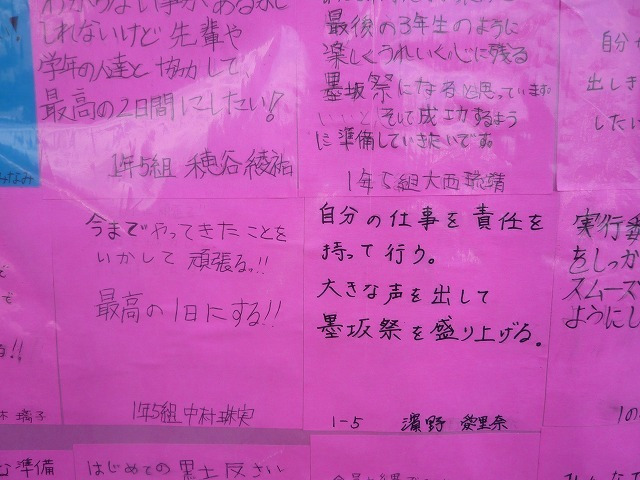 わからない事があるかも
しれないけど先輩や
学年の人達と協力して、
最高の2日間にしたい!
1年5組 穂谷綾祐
最後の3年生のように
楽しくうれしく心に残る
墨坂祭になると思っています
そして成功するよう
に準備していきたいです。
1年5組大西
自分
出しま
したい
みなみ
今までやってきたことを
いかして頑張るっ!!
最高の1日にする!!
1年5組中村珠実
自分の仕事を責任を
持って行う。
大きな声を出して
墨坂祭を盛り上げる。
1-5 濱野 愛里奈
実行委
をしっか
スムーズ
ようにし
1の
!!
木 璃子
な準備
はじめての墨坂祭